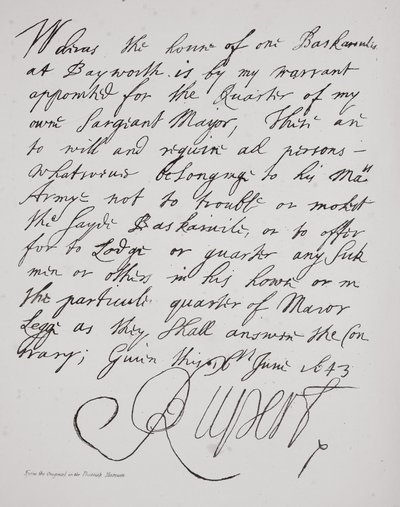 Wheras the house of one Baskervile
at Bayworth is by my warrant
appointed for the Quarter of my
owne Sargiant Mayor, These are
to will and require all persons -
whatsoever belonginge to his Ma:tis
Armye not to trouble or molest
the sayde Baskervile, or to offer
for to Lodge or quarter any
men or others in his howse or in
the particuler quarter of Maior
Legge as they shall answere the Con
trary; Given this June 1643
Rupert
From the Original in the British Museum